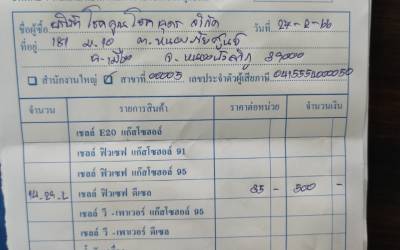 ชื่อผู้ซื้อ บริษัท โชคคูณโชค อุดร จำกัด วันที่ 27-2-66
ที่อยู่ 181 ม.10 ต.หนองภัยศูนย์
อ.เมือง จ.หนองบัวลำภู 39000
สำนักงานใหญ่ สาขาที่ 00003 เลขประจำตัวผู้เสียภาษี
จำนวน รายการสินค้า ราคาต่อหน่วย จำนวนเงิน
เชลล์ E20 แก๊สโซฮอล์
เชลล์ ฟิวเซฟ แก๊สโซฮอล์ 91
เชลล์ ฟิวเซฟ แก๊สโซฮอล์ 95
เชลล์ ฟิวเซฟ ดีเซล 35 - 500 -
เชลล์ วี -เพาเวอร์ แก๊สโซฮอล์ 95
เชลล์ วี -เพาเวอร์ ดีเซล